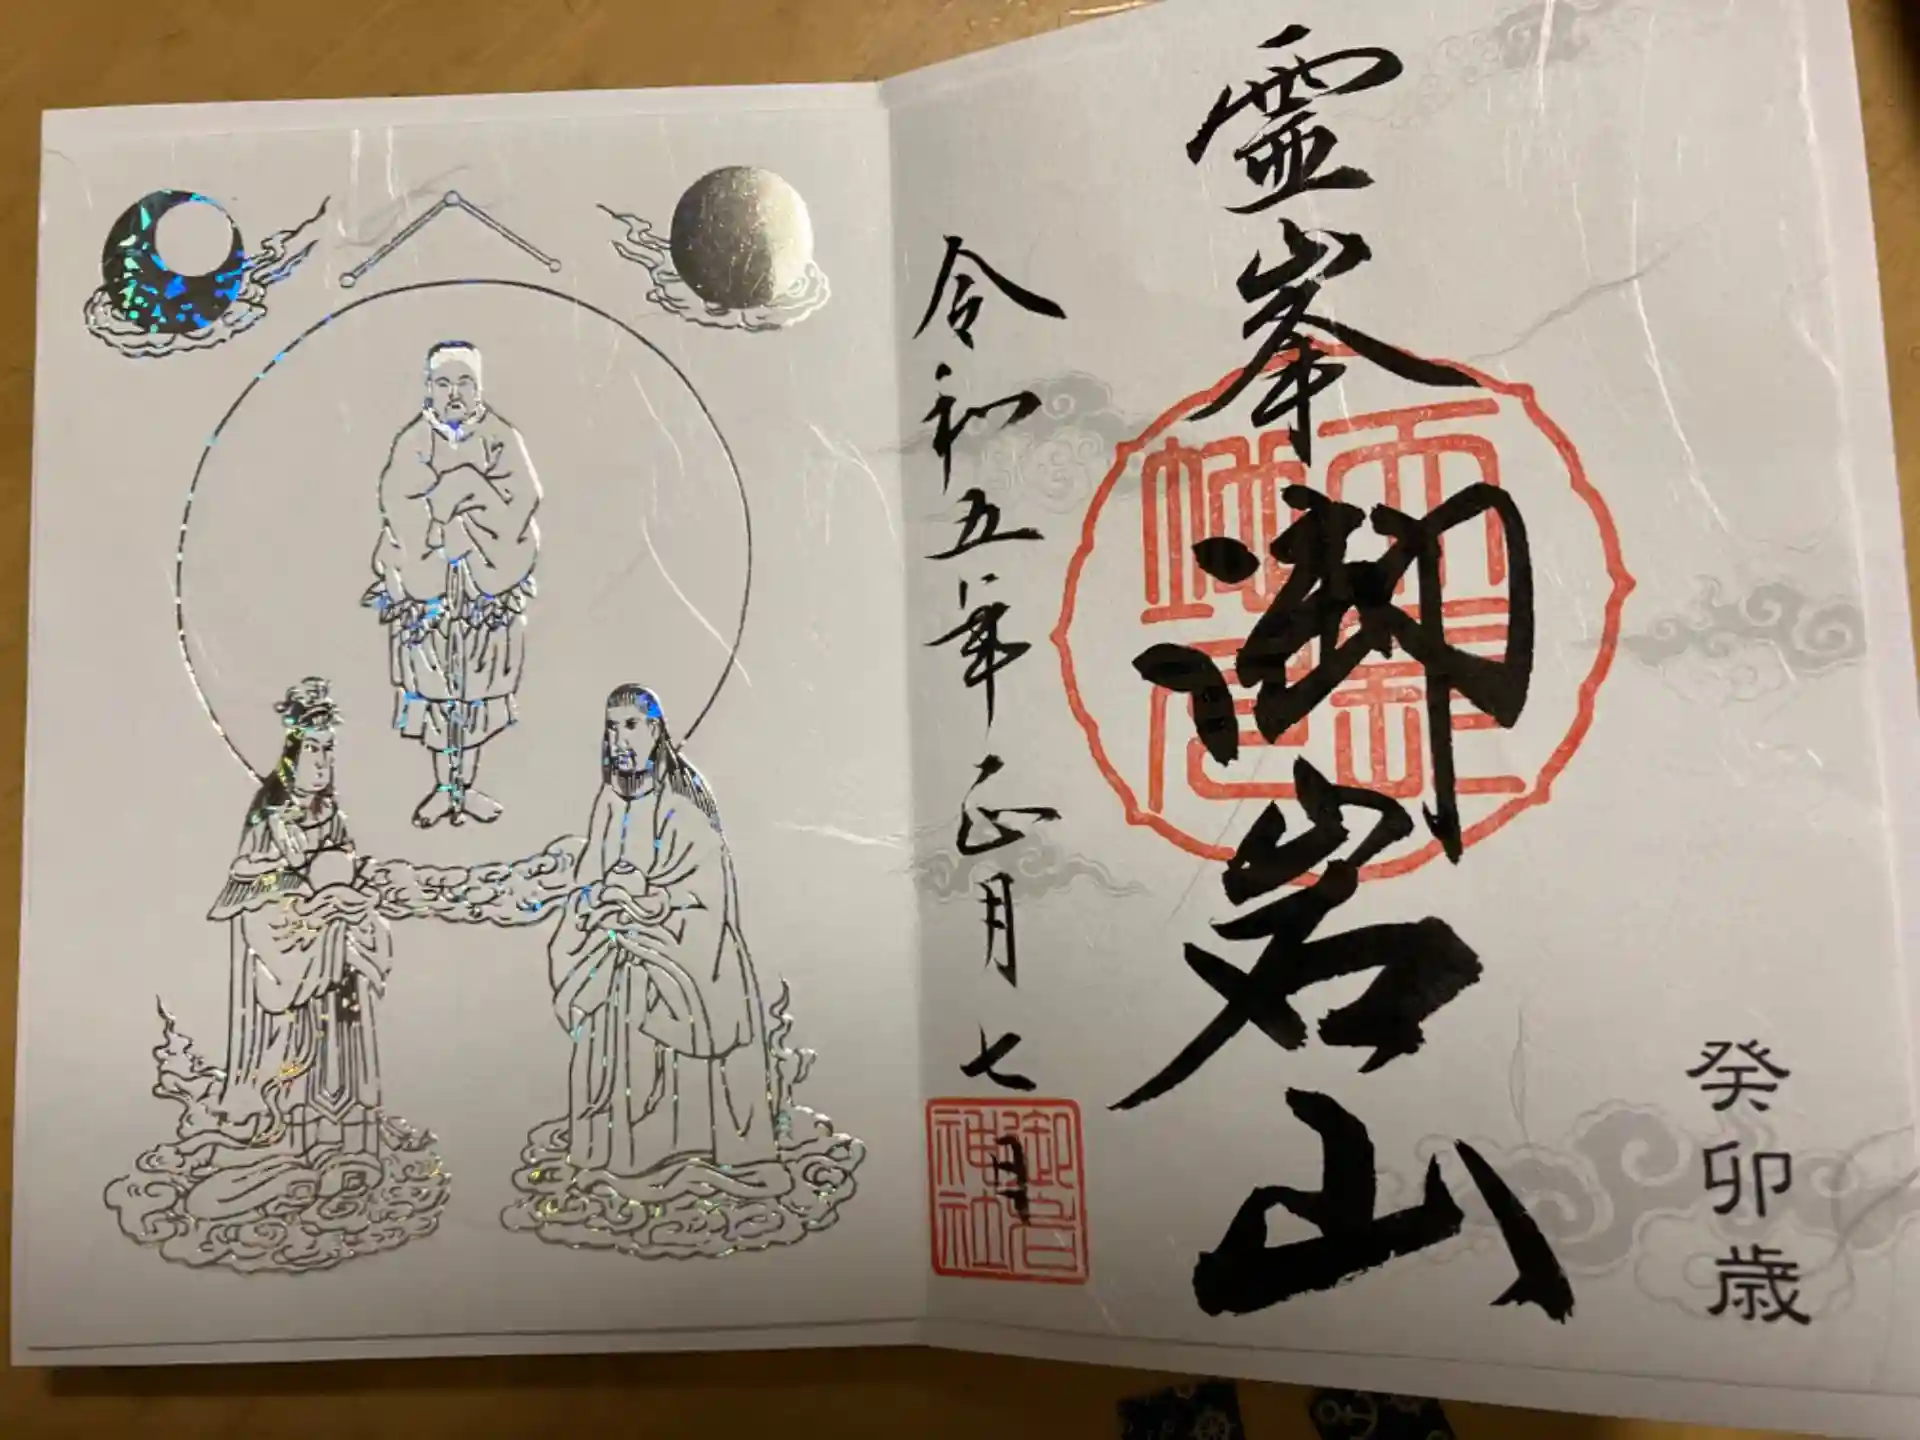 癸卯歳
霊峯御岩山
令和五年正月七日
御岩神社